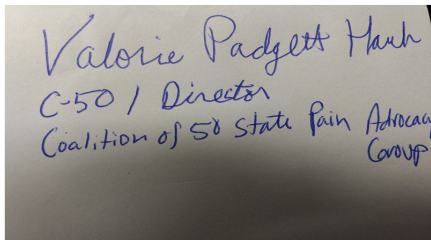 Valorie Padgett Hawk
C-50 / Director
Coalition of 50 State Pain Advocacy
Group